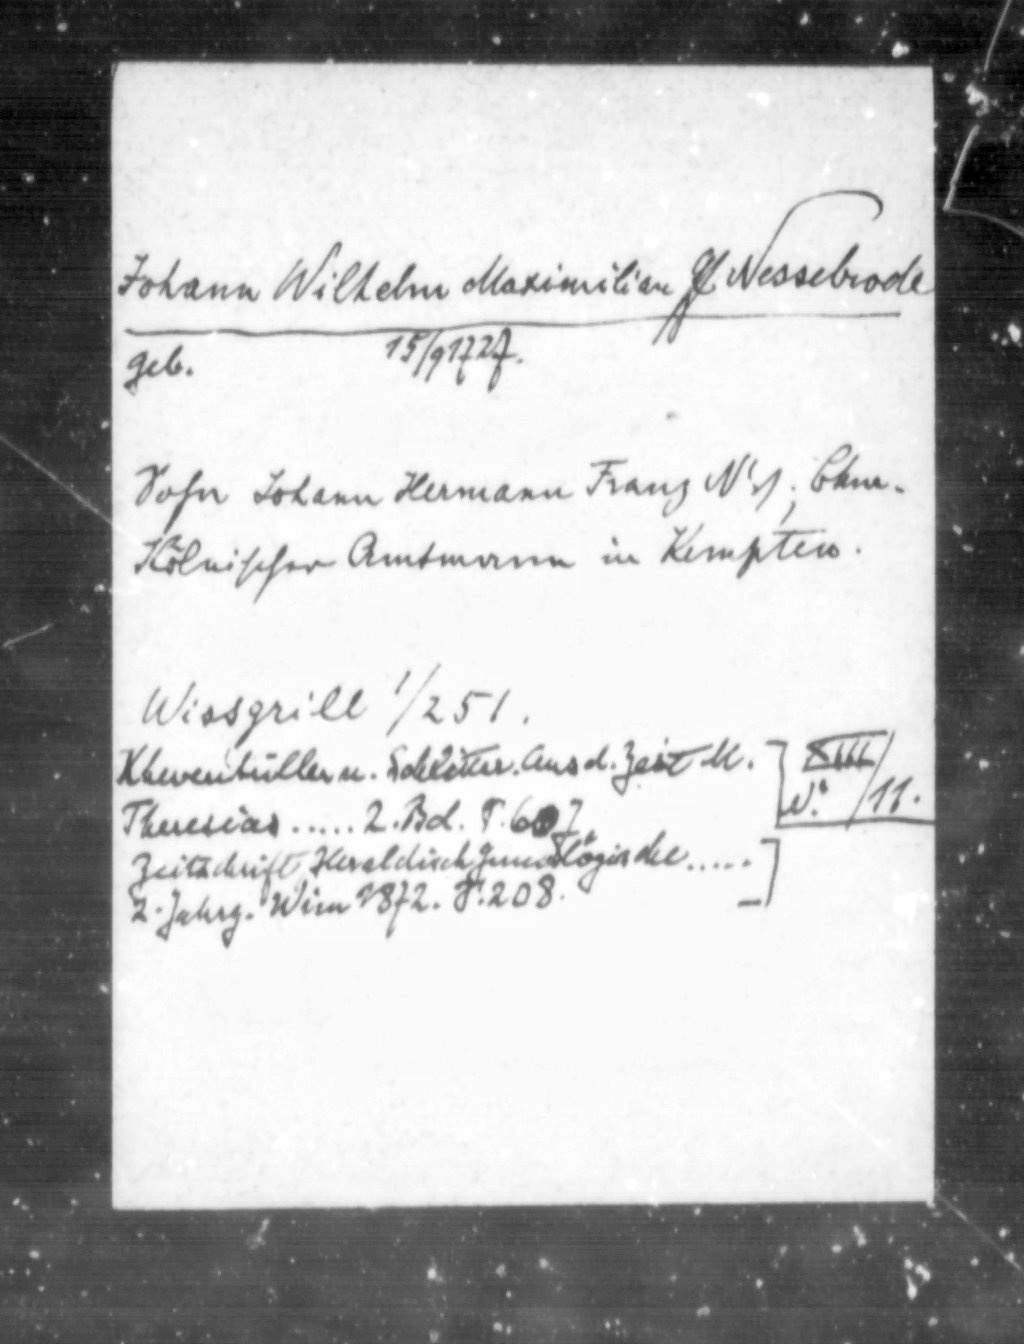 Johann Wilhelm Maximilian Gf Nesselrode
geb. 15/9 1727.
Sohn Johann Hermann Franz N's, Chur-
Kölnischer Amtmann in Kempten.
Wissgrill 1/251.
Khevenhüller u. Schlitter. Aus d. Zeit M.
Theresias ..... 2. Bd. S.
XIII/11.
Zeitschrift Heraldisch Genealogische .....
2. Jahrg. Wien 1872. S. 208.